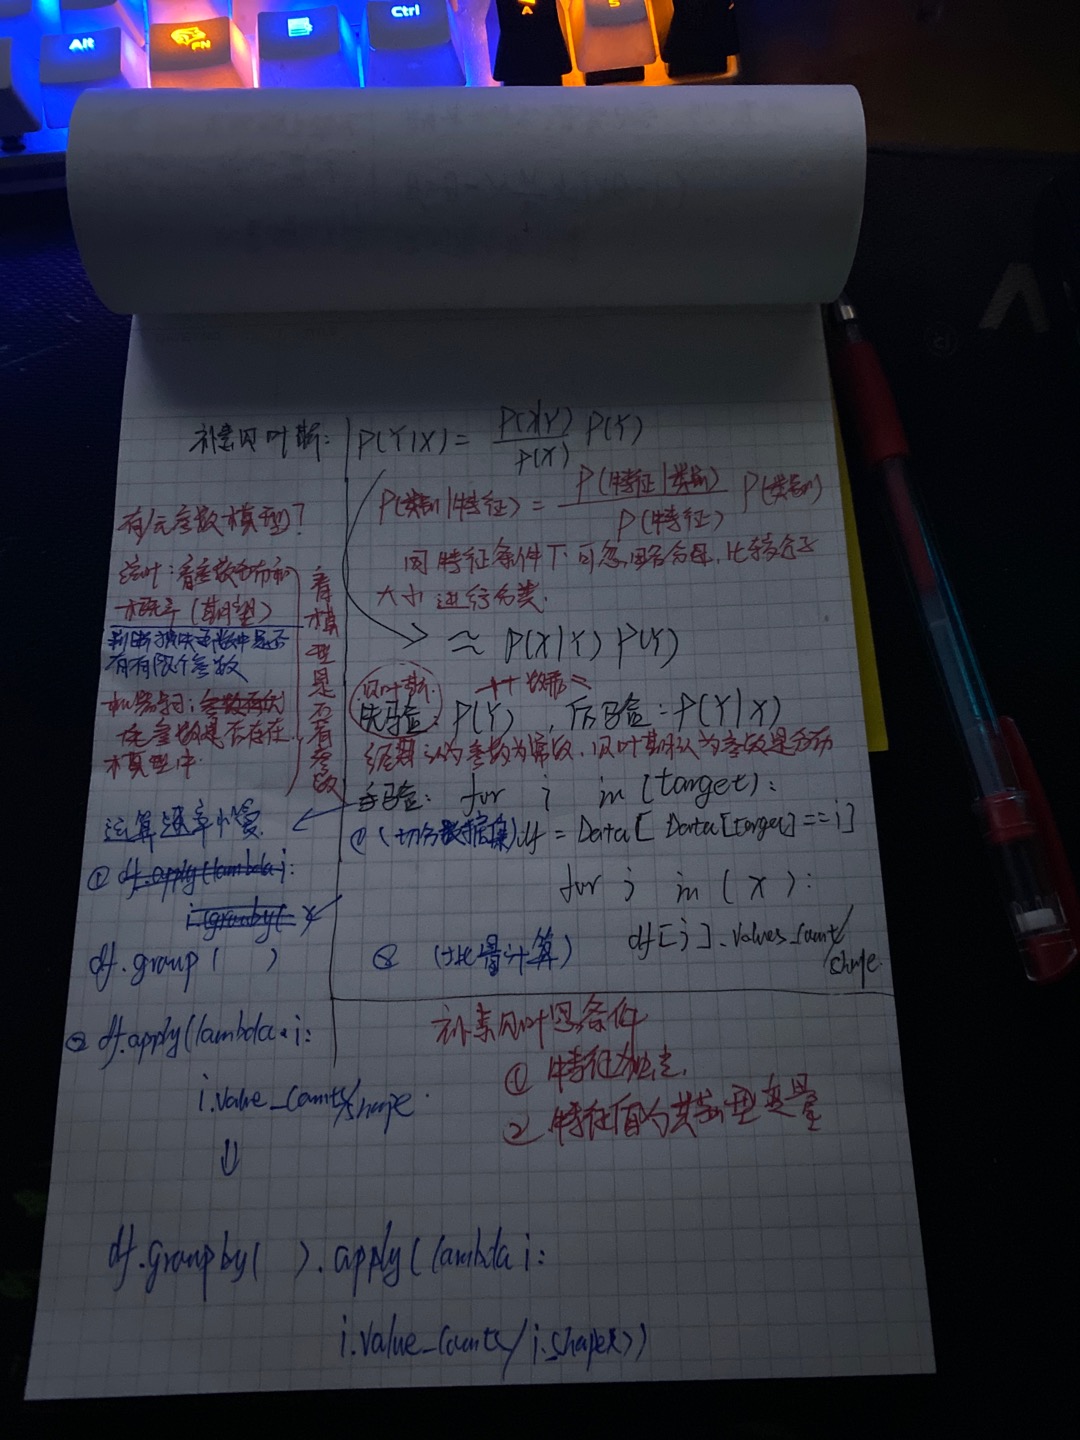 Alt
FN
Ctrl
A
S
朴素贝叶斯: P(Y|X) = P(X|Y) / P(X) P(Y)
P(类别|特征) = P(特征|类别) / P(特征) P(类别)
同特征条件下可忽略分母,比较分子
大小进行分类.
≈ P(X|Y) P(Y)
贝叶斯.
先验: P(Y) ++ 数据 = , 后验: P(Y|X)
认为参数为常数,贝叶斯认为参数是分布
: for i in (target):
① (切分数据集) df = Data[Data[target]==i]
for j in (X):
② (批量计算) df[j].values_count/
shape.
有/无参数模型?
统计: 看参数分布和
概率(期望)
判断损失函数中是否
有有限个参数
机器学习:
参数是否存在
模型中.
看模型是否有参数
运算速率
① df.apply(lambda i:
i.(groupby(
df.group( )
② df.apply(lambda i:
i.value_counts/shape.
⇓
df.groupby( ).apply(lambda i:
i.value_counts/i.shape())
朴素贝叶斯条件
① 特征独立.
② 特征值为类别型变量